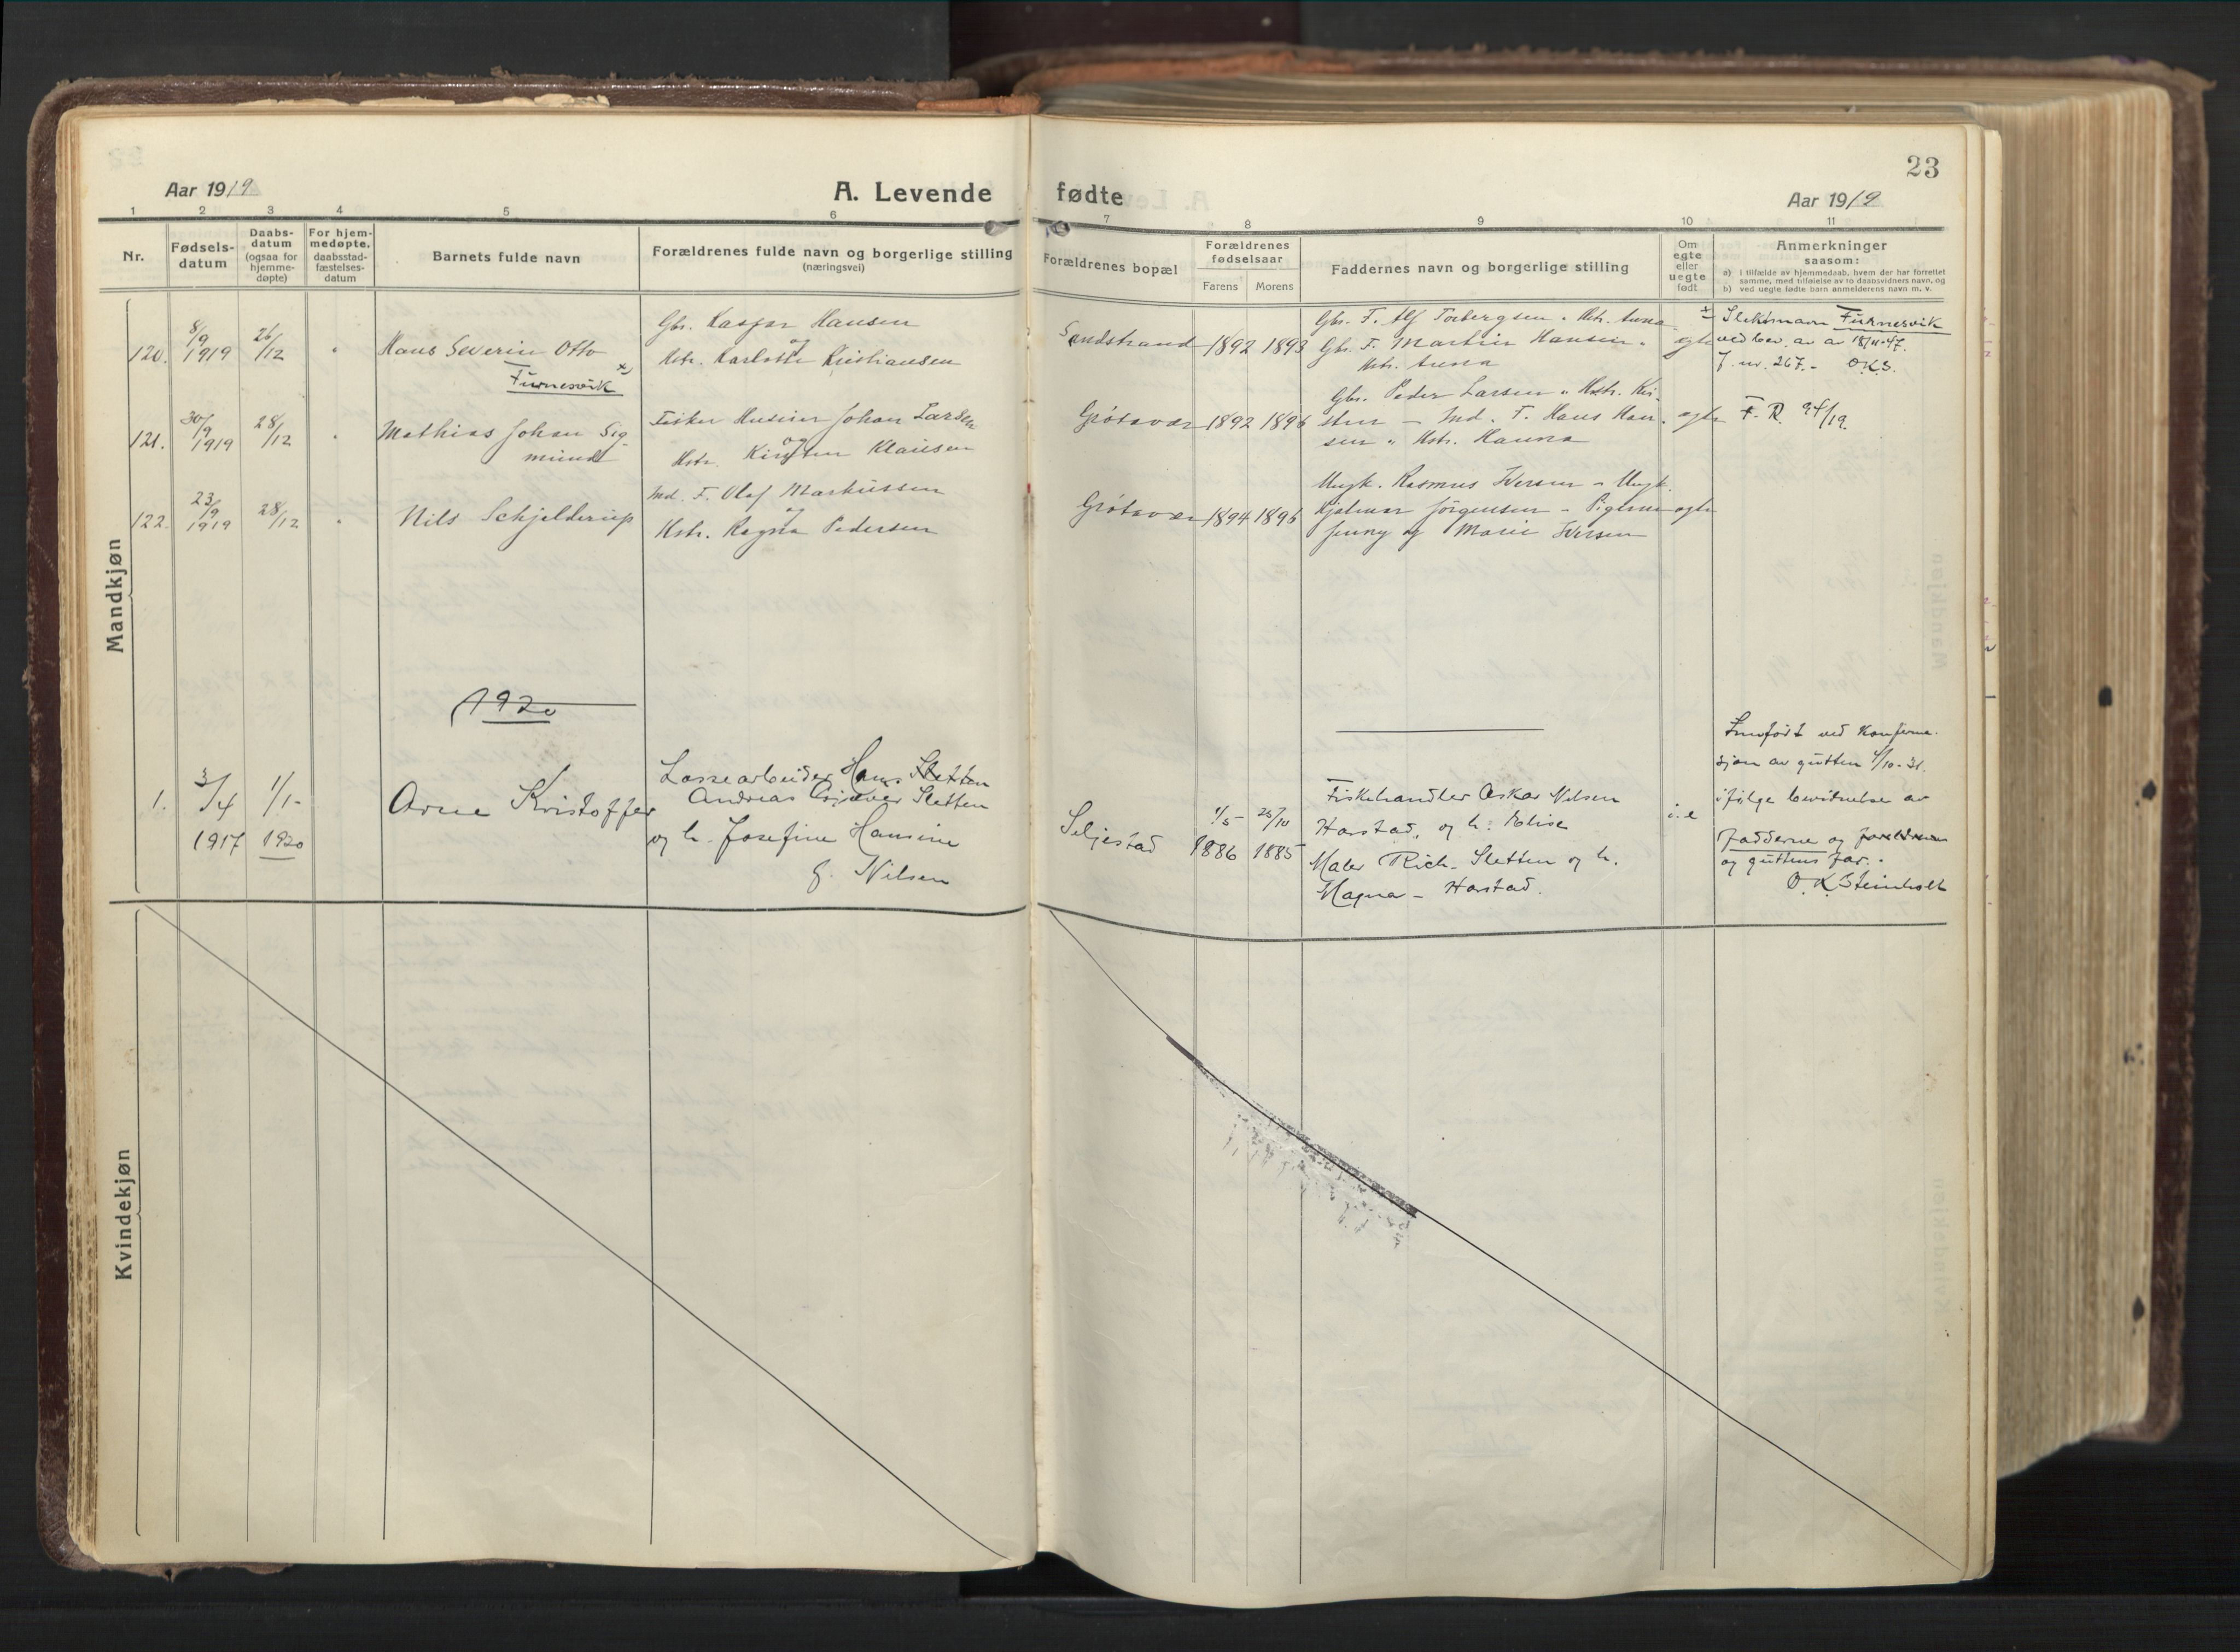 23
Aar 1919
A. Levende fødte
Aar 1919
1 2 3 4 5 6 7 8 9 10 11
Nr.
Fødsels-
datum
Daabs-
datum
(ogsaa for
hjemme-
døpte)
For hjem-
medøpte,
daabsstad-
fæstelses-
datum
Barnets fulde navn
Forældrenes fulde navn og borgerlige stilling
(næringsvei)
Forældrenes bopæl
Forældrenes
fødselsaar
Farens Morens
Faddernes navn og borgerlige stilling
Om
egte
eller
uegte
født
Anmerkninger
saasom:
a) i tilfælde av hjemmedaab, hvem der har forrettet
samme, med tilføielse av to daabsvidners navn, og
b) ved uegte fødte barn anmelderens navn m. v.
Mandkjøn
120.
8/9
1919
26/12
Hans Severin Otto
Furnesvik x)
Gbr. Kaspar Hansen
og
Hstr. Karlotte Kristiansen
Sandstrand
1892 1893
Gbr. F. Alf Torbergsen - Hstr. Anna
Gbr. F. Martin Hansen -
Hstr. Anna
egte
x) Slektsnavn Furnesvik
ved bev. av 18/11-47.
J. nr. 267. - O.K.S.
121.
30/9
1919
28/12
Mathias Johan Sig-
mund
Fisker Husmor Johan Larsen
og
Hstr. Kirsten Klausen
Grötavær
1892 1896
Gbr. Peder Larsen " Hstr. Kir-
sten - Ind. F. Hans Han-
sen " Hstr. Hanna
egte
F. R. 94/19.
122.
23/9
1919
28/12
Nils Schjelderup
Ind. F. Olaf Markussen
og
Hstr. Ragna Pedersen
Grötavær
1894 1896
Ungk. Rasmus Iversen - Ungk.
Hjalmar Jörgensen - Pigerne
Jenny og Marie Iversen
egte
1920
1.
3/4
1917
1/1-
1920
Arne Kristoffer
Lossearbeider Hans Sletten
Andreas Sletten
og h. Josefine Hansine
f. Nilsen
Seljestad
1/5- 25/10
1886 1885
Fiskehandler Oskar Nilsen
Harstad, og h: Elise
Maler Rich. Sletten og h.
Magna - Harstad.
i.e
Innført ved konfirma-
sjon av gutten 4/10-31.
ifölge bevidnelse av
fadderne og foreldrene
og guttens far. -
O. K. Steinholt
Kvindekjøn